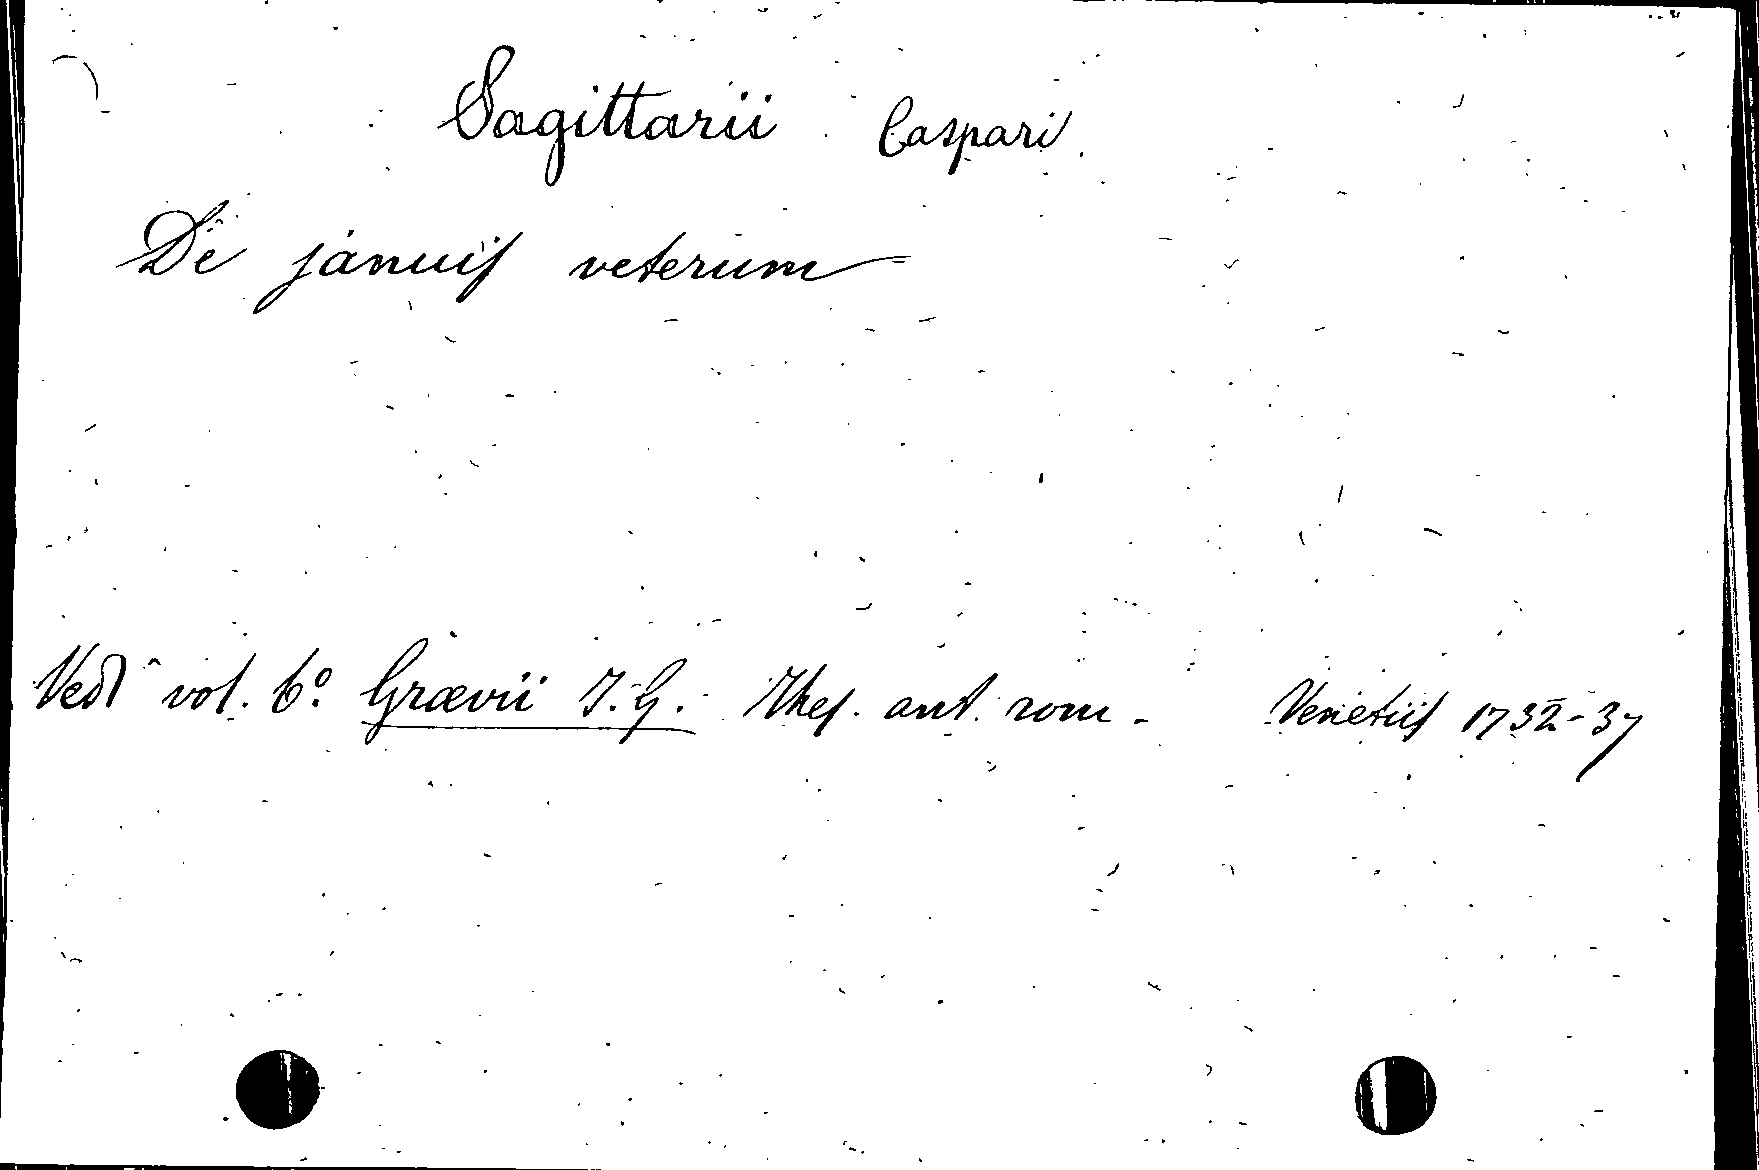 Sagittarii Caspari
De januis veterum
Vedi vol. 6º Grævii J. G. Thes. ant. rom. Venetiis 1732-37